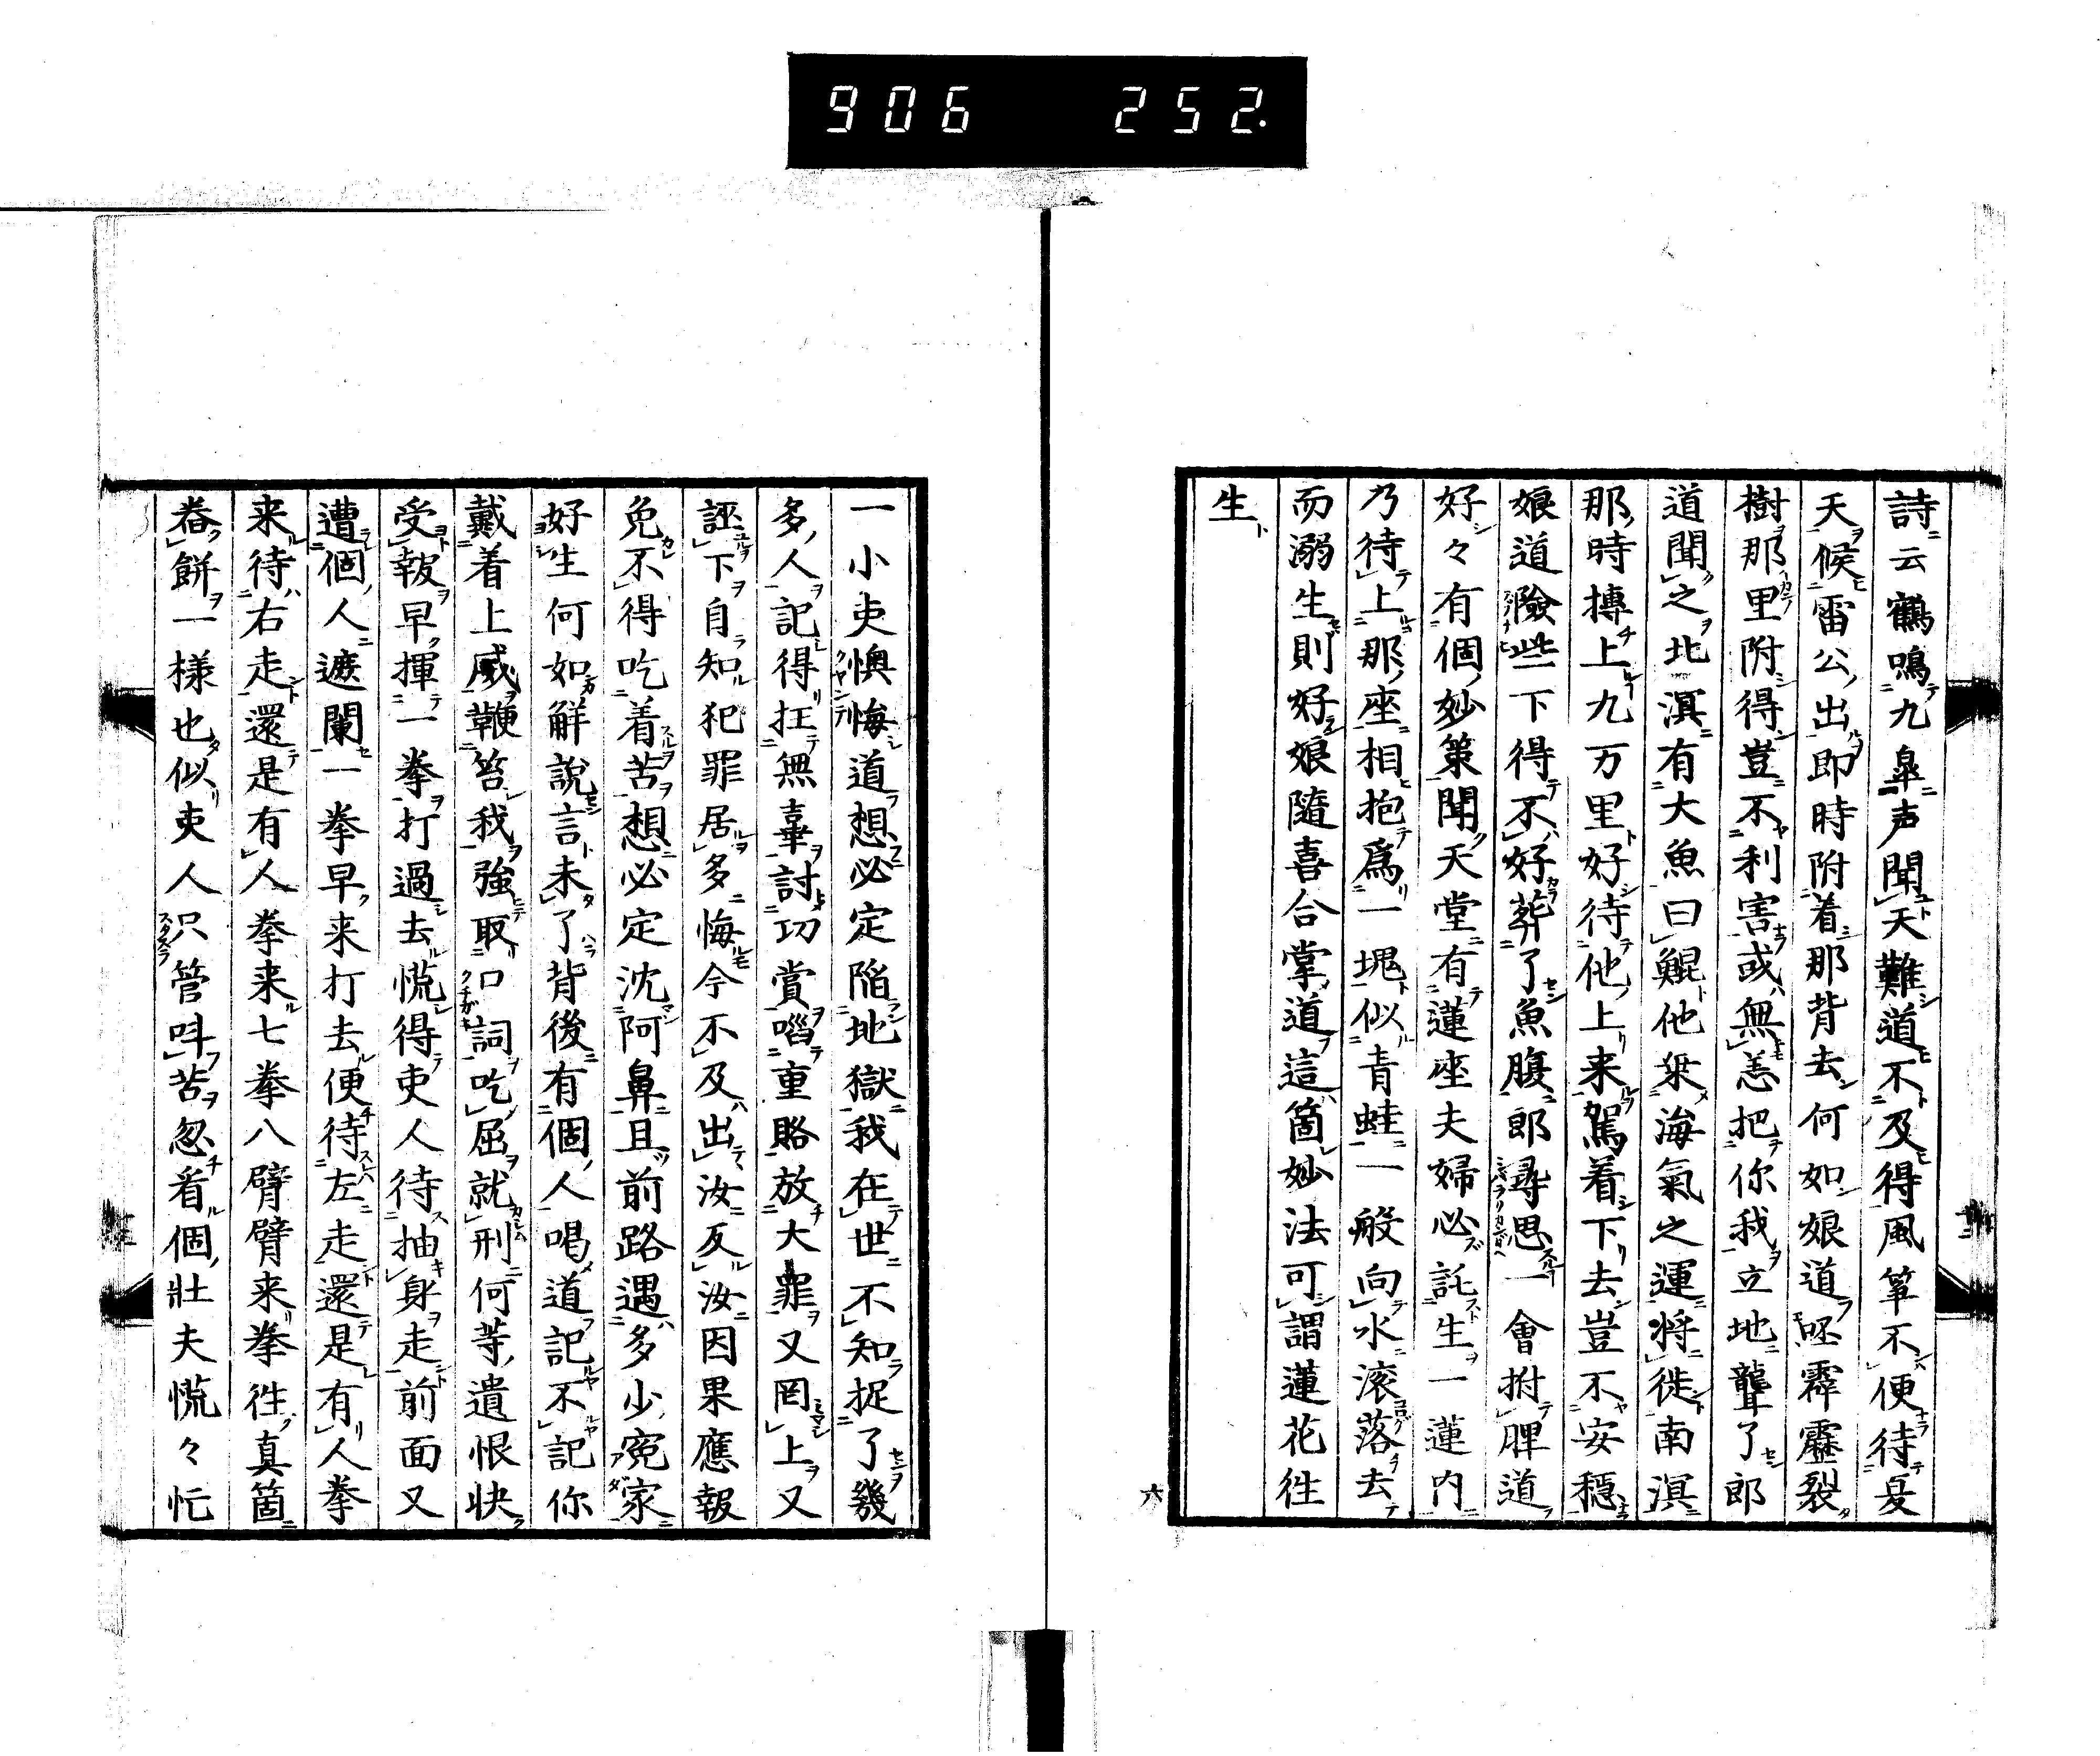 906 252.
詩云鶴鳴九皐声聞天難道不及得風箏不便待戛
天候雷公出即時附着那背去何如娘道呸霹靂裂
樹那里附得豈不利害或無恙把你我立地聾了郎
道聞之北溟有大魚曰鯤他乗海氣之運將徙南溟
那時摶上九万里好待他上来駕着下去豈不安穏
娘道險些下得不好葬了魚腹郎尋思一會拊脾道
好々有個妙策聞天堂有蓮座夫婦必託生一蓮内
乃待上那座相抱爲一塊似青蛙一般向水滚落去
而溺生則好娘隨喜合掌道這箇妙法可謂蓮花往
生
六
一小吏懊悔道想必定陷地獄我在世不知捉了幾
多人記得扛無辜討功賞啗重賂放大罪又罔上又
誣下自知犯罪居多悔今不及出汝反汝因果應報
免不得吃着苦想必定沈阿鼻且前路遇多少寃家
好生何如解說言未了背後有個人喝道記不記你
戴着上威鞭笞我強取口詞吃屈就刑何等遺恨快
受報早揮一拳打過去慌得吏人待抽身走前面又
遭個人遮闌一拳早来打去便待左走還是有人拳
来待右走還是有人拳来七拳八臂臂来拳徃真箇
卷餅一様也似吏人只管呌苦忽看個壯夫慌々忙